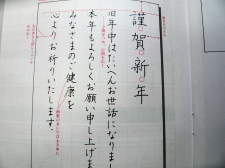 謹賀新年
旧年中はたいへんお世話になりまし
本年もよろしくお願い申し上げま
みなさまのご健康を
心よりお祈りいたします。